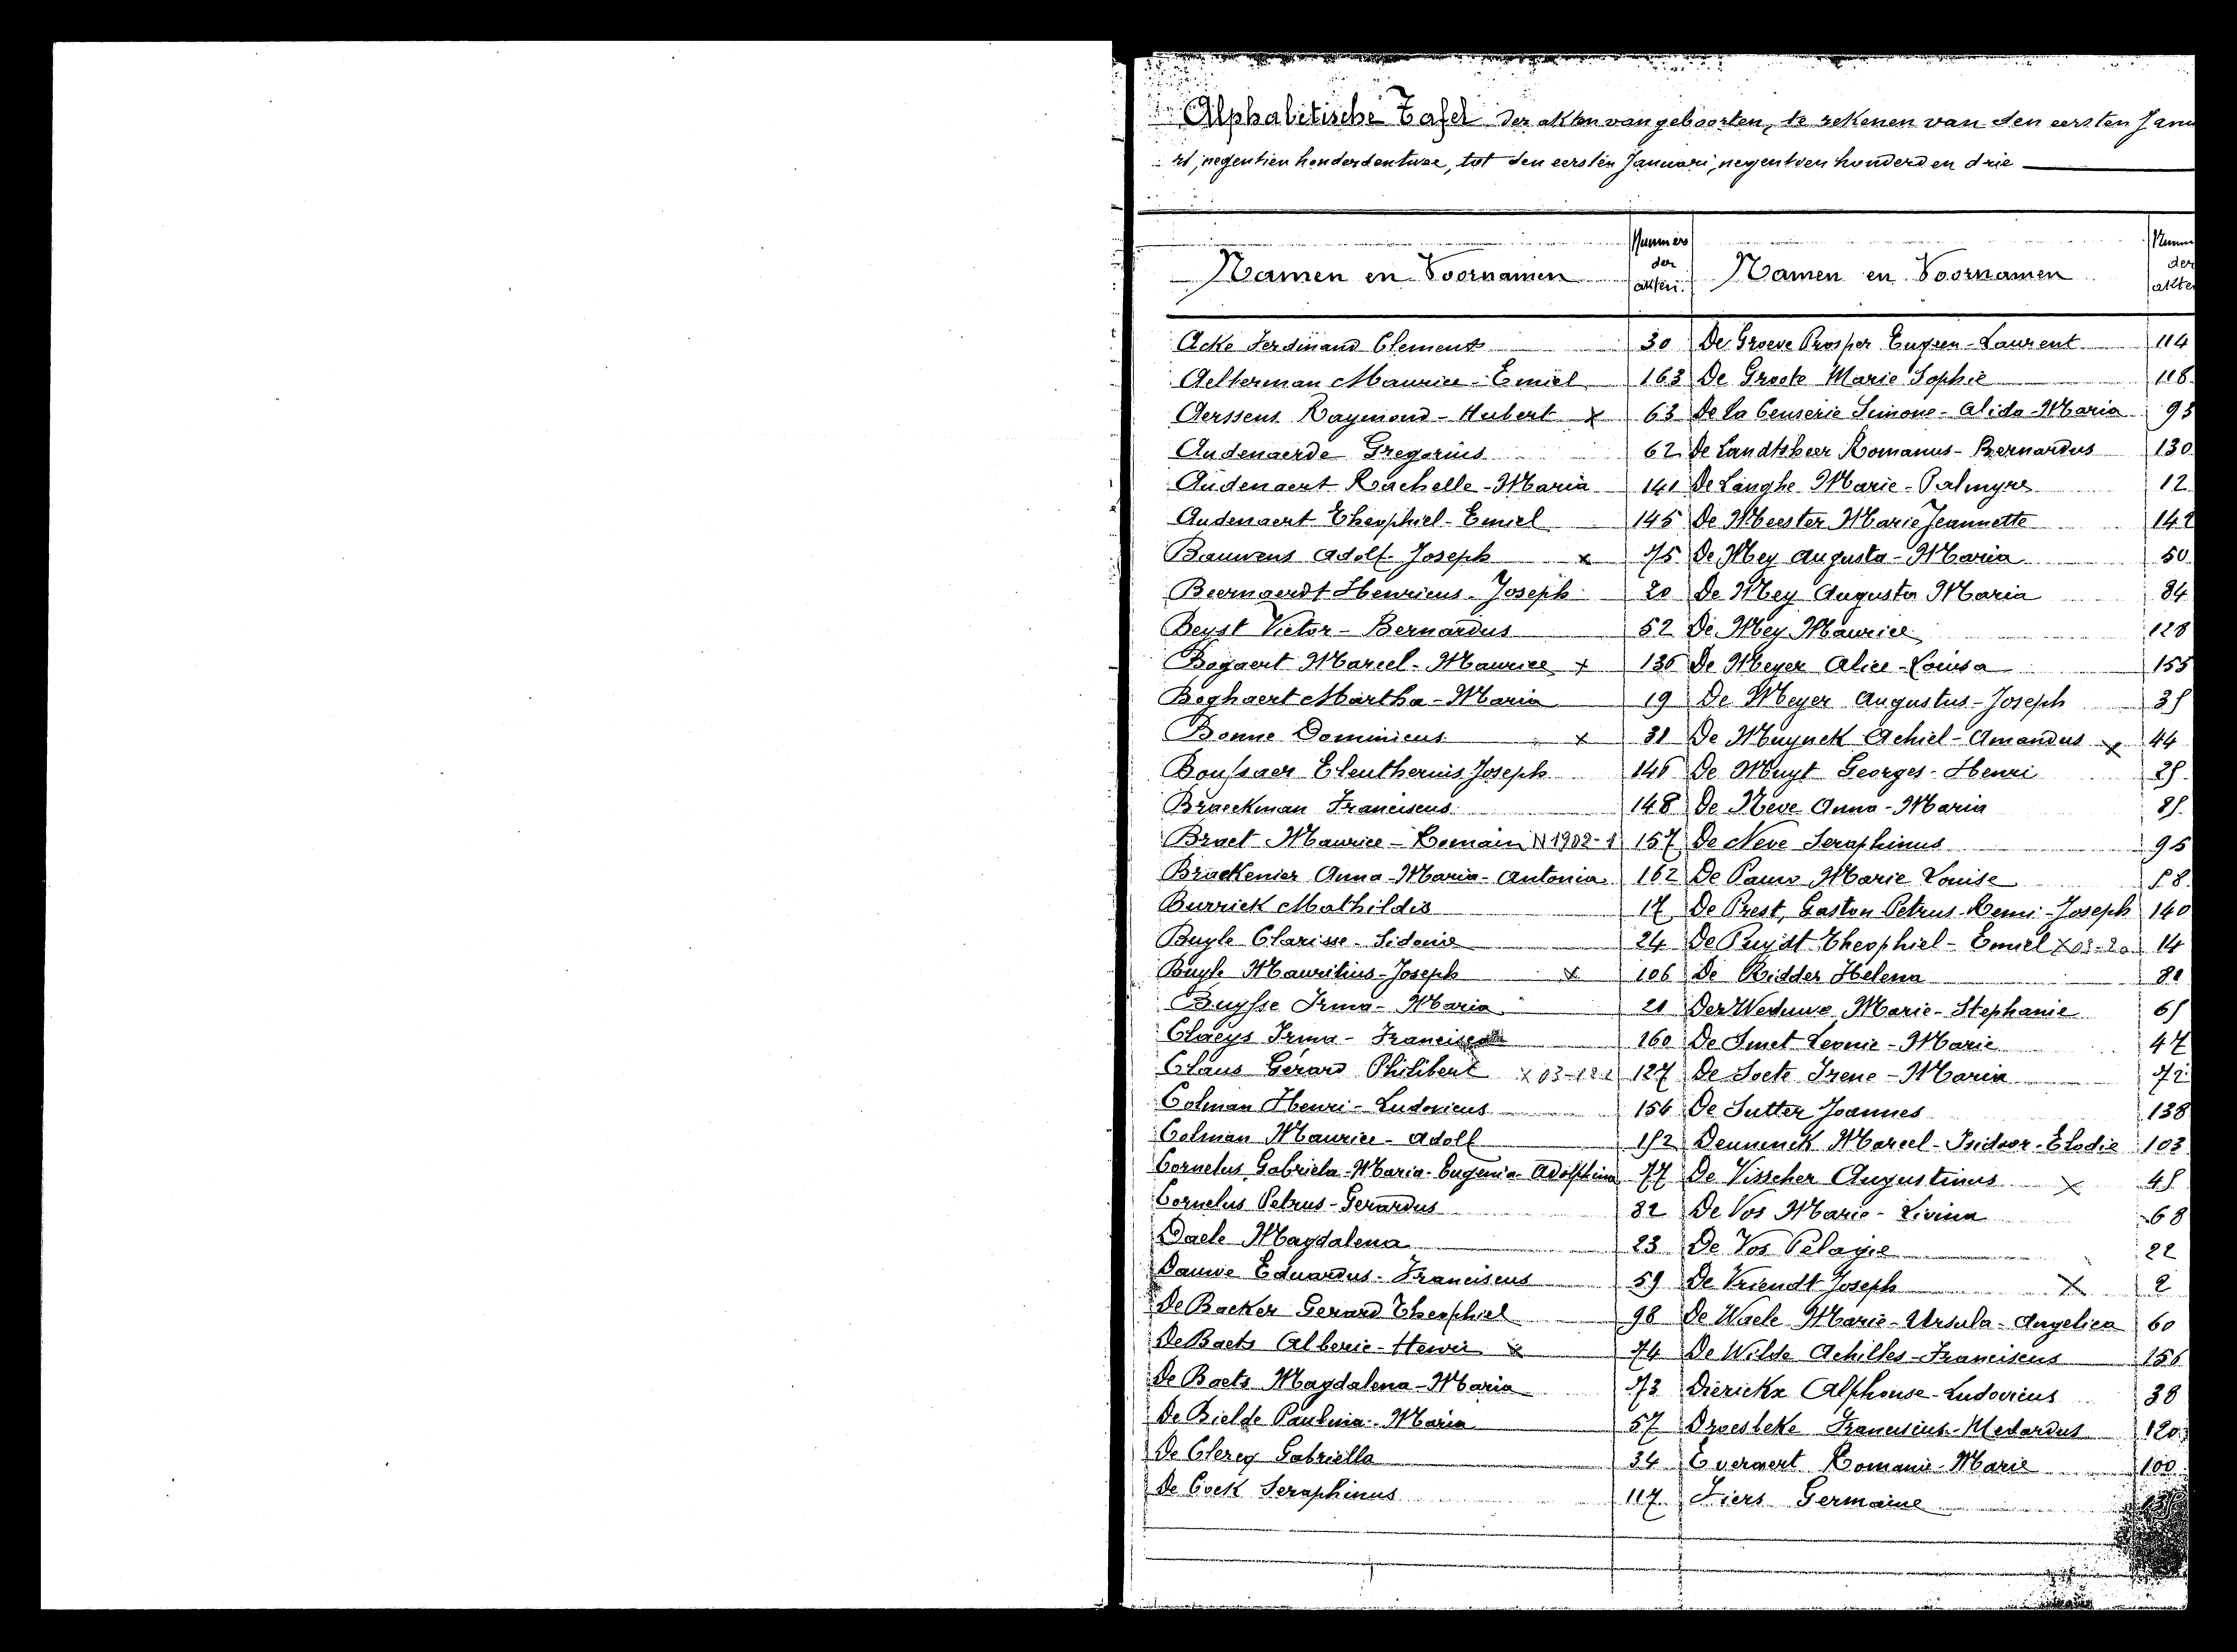 Alphabetische Tafel der akten van geboorten, te rekenen van den eersten Janu
ri, negentien honderd en twee, tot den eersten Januari, negentien honderd en drie
Namen en Voornamen
Nummers der akten.
Namen en Voornamen
Numm der akte
Acke Ferdinand Clement 30
Aelterman Maurice-Emiel 163
Aerssens Raymond-Hubert x 63
Audenaerde Gregorius 62
Audenaert Rachelle-Maria 141
Audenaert Theophiel-Emiel 145
Bauwens Adolf-Joseph x 75
Beernaerdt Henricus-Joseph 20
Beyst Victor-Bernardus 52
Bogaert Marcel-Maurice x 136
Boghaert Martha-Maria 19
Bonne Dominicus x 31
Boussaer Eleutherius Joseph 146
Braeckman Franciscus 148
Braet Maurice-Romain N 1902-1 157
Brackenier Anna-Maria-Antonia 162
Burrick Mathildis 17
Buyle Clarisse-Sidonie 24
Buyle Mauritius-Joseph x 106
Buysse Irma-Maria 21
Claeys Irma-Francisca 160
Claus Gérard Philibert x 03-122 127
Colman Henri-Ludovicus 154
Colman Maurice-Adolf 152
Cornelus Gabriela-Maria-Eugenia-Adolphina 77
Cornelus Petrus-Gerardus 32
Daele Magdalena 23
Dauwe Eduardus-Franciscus 59
De Backer Gerard Theophiel 98
De Baets Alberic-Henri x 74
De Baets Magdalena-Maria 73
De Bielde Paulina-Maria 57
De Clercq Gabriella 34
De Cock Seraphinus 117
De Groeve Prosper Eugeen-Laurent 114
De Groote Marie Sophie 118
De la Censerie Simone-Alida-Maria 93
De Landtsheer Romanus-Bernardus 130
De Langhe Marie-Palmyre 12
De Meester Marie Jeannette 142
De Mey Augusta-Maria 50
De Mey Augusta Maria 84
De Mey Maurice 128
De Meyer Alice-Louisa 155
De Meyer Augustus-Joseph 35
De Muynck Achiel-Amandus x 44
De Muyt Georges-Henri 25
De Neve Anna-Maria 85
De Neve Seraphinus 95
De Pauw Marie Louise 58
De Prest, Gaston Petrus-Remi-Joseph 140
De Puydt Theophiel-Emiel x 03-20 14
De Ridder Helena 81
Der Weduwe Marie-Stephanie 65
De Smet Leonie-Marie 47
De Soete Irene-Maria 72
De Sutter Joannes 138
Deuninck Marcel-Isidoor-Elodie 103
De Visscher Augustinus x 45
De Vos Marie-Livina 68
De Vos Pelagie 22
De Vriendt Joseph x 2
De Waele Marie-Ursula-Angelica 60
De Wilde Achilles-Franciscus 156
Dierickx Alphonse-Ludovicus 38
Droesbeke Franciscus-Medardus 120
Everaert Romanie-Marie 100
Fiers Germaine